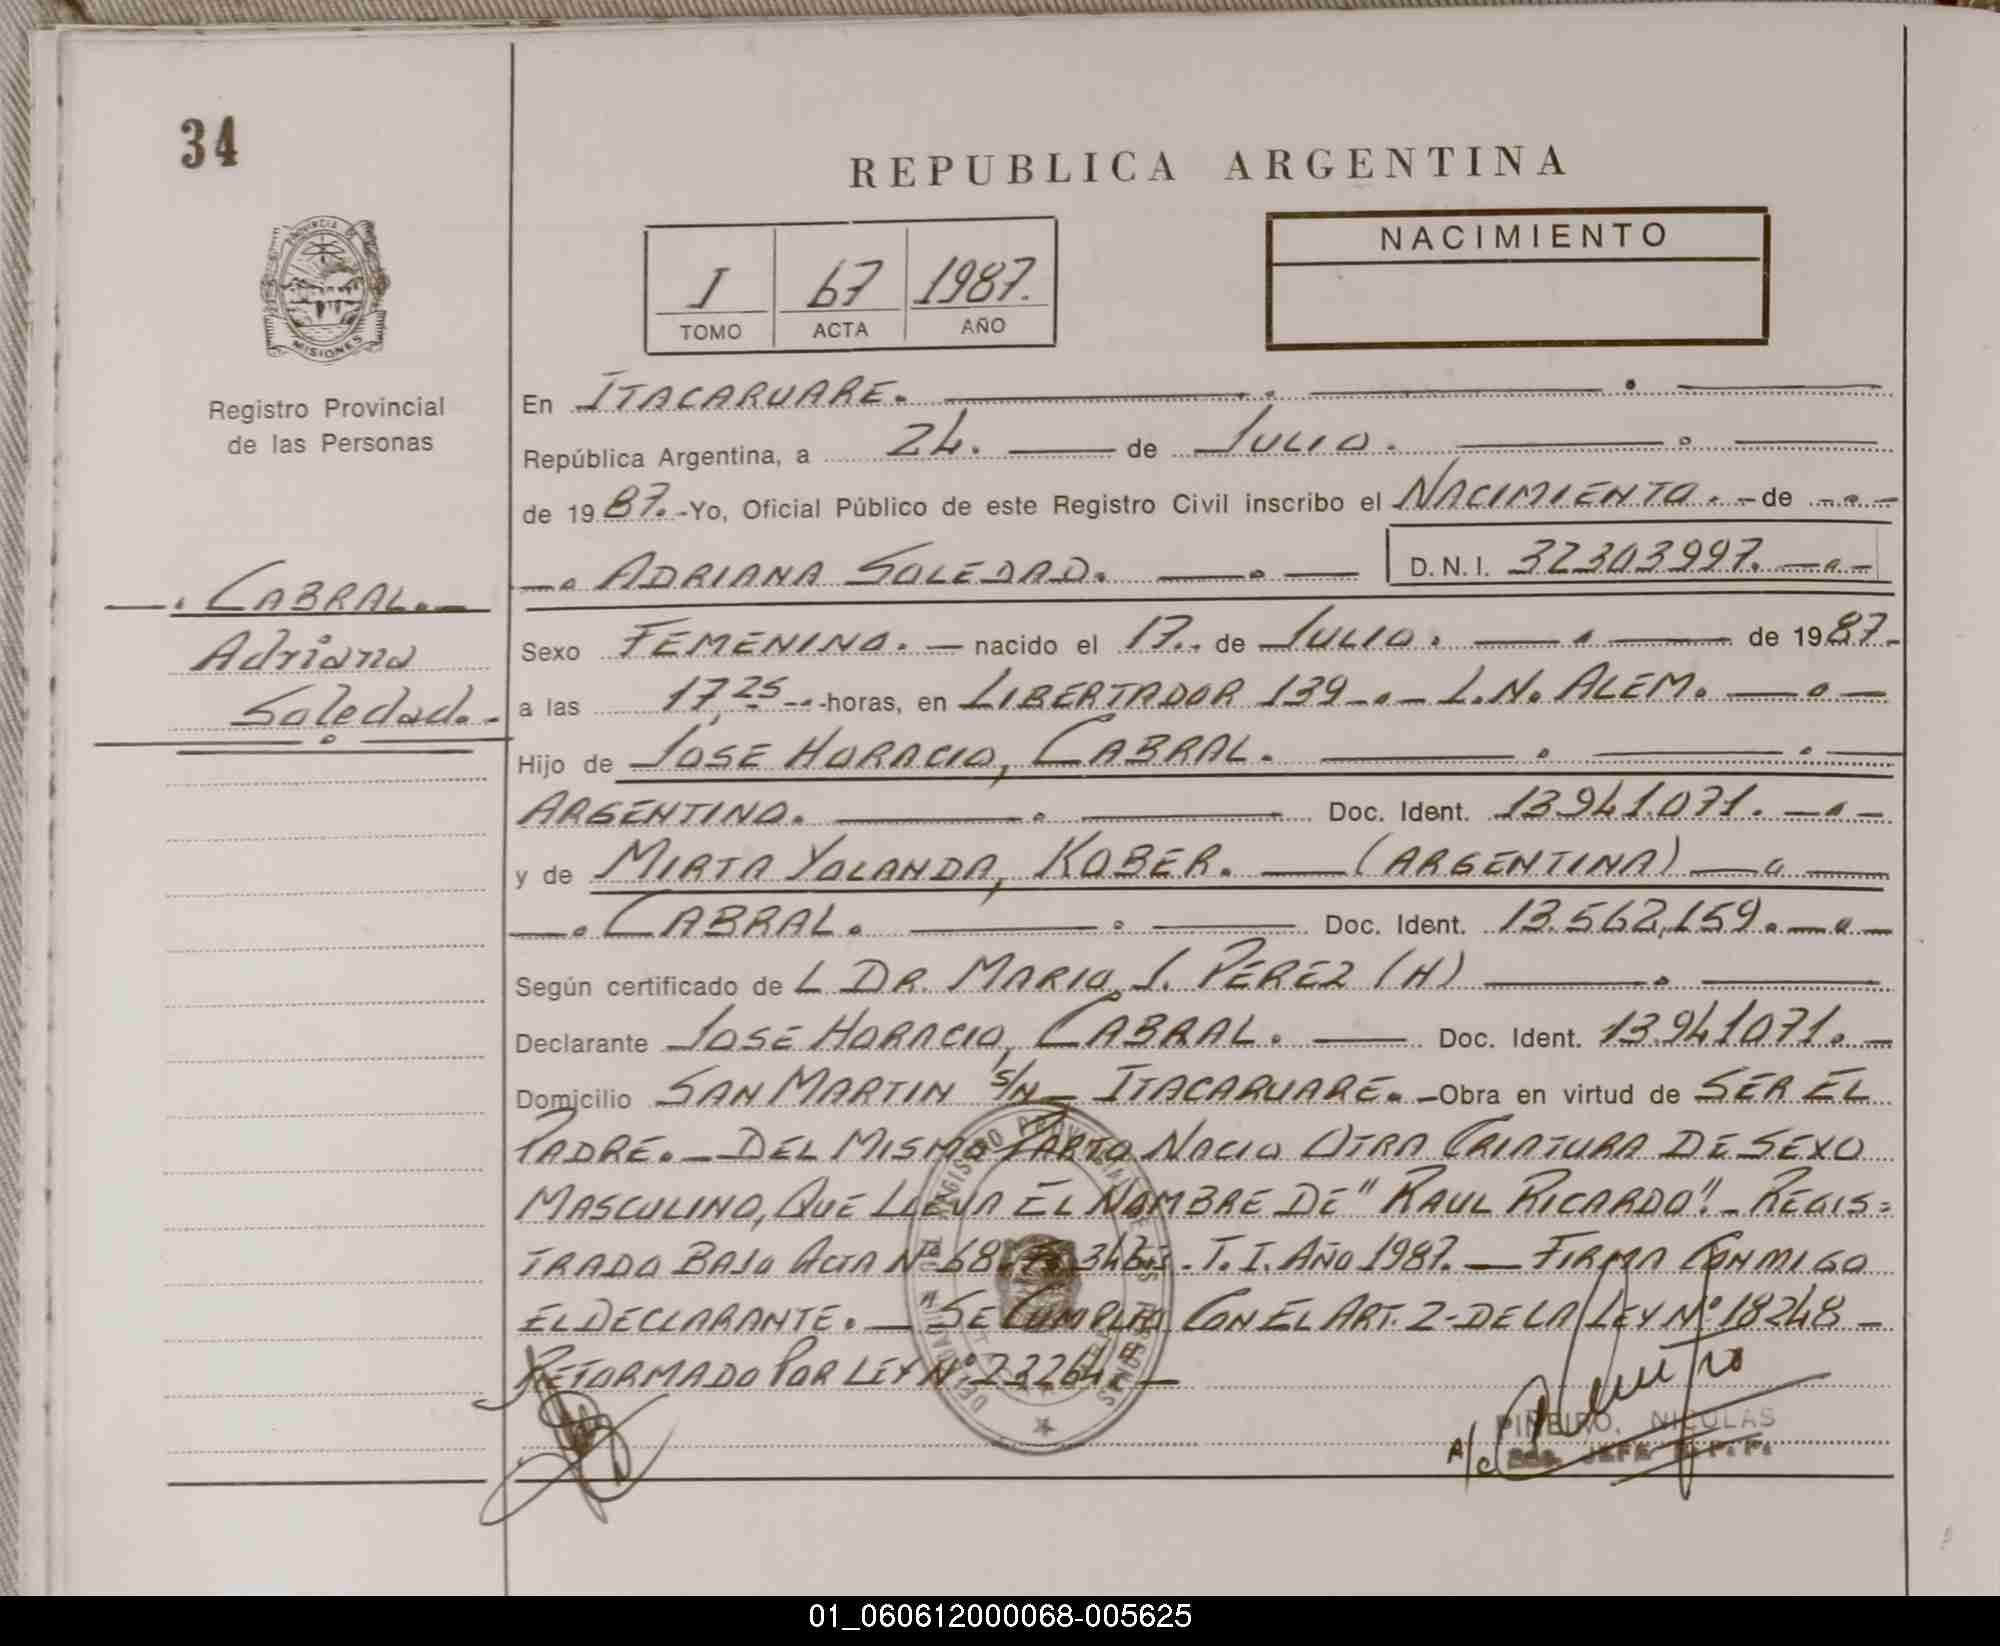 34
REPUBLICA ARGENTINA
PROVINCIA DE
MISIONES
I 67 1987.
TOMO ACTA AÑO
NACIMIENTO
Registro Provincial
de las Personas
CABRAL.
Adriana
Soledad.-
En ITACARUARE.
República Argentina, a 24. de JULIO.
de 1987.-Yo, Oficial Público de este Registro Civil inscribo el NACIMIENTO. - de
ADRIANA SOLEDAD. D.N.I. 32303997.
Sexo FEMENINO. - nacido el 17. de JULIO. de 1987.-
a las 17,25 horas, en LIBERTADOR 139 - L.N. ALEM.
Hijo de JOSE HORACIO, CABRAL.
ARGENTINO. Doc. Ident. 13.941.071.
y de MIRTA YOLANDA, KOBER. (ARGENTINA)
CABRAL. Doc. Ident. 13.562,159.
Según certificado de L DR. MARIO J. PEREZ (H)
Declarante JOSE HORACIO, CABRAL. Doc. Ident. 13.941071.
Domicilio SAN MARTIN S/N - ITACARUARE. - Obra en virtud de SER EL
PADRE. - DEL MISMO PARTO NACIO OTRA CRIATURA DE SEXO
MASCULINO, QUE LLEVA EL NOMBRE DE "RAUL RICARDO". - REGIS=
TRADO BAJO ACTA Nº 68. T. I. AÑO 1987. - FIRMA CONMIGO
EL DECLARANTE. - SE CUMPLIO CON EL ART. 2 - DE LA LEY Nº 18248 -
REFORMADO POR LEY Nº 23264. -
PIÑEIRO, NICOLAS
A/c JEFE R.P.P.
01_060612000068-005625